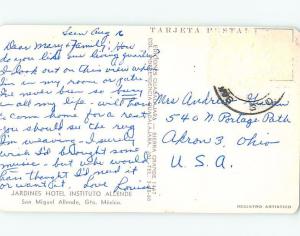 TARJETA POSTAL
Seen Aug 16
Dear Mary & Family: How
do you like our living quarters
I look out on this view
in my room or patio
I've never been so busy
in all my life - will have
to come home for a rest
you should see the rug
I'm weaving - I surely
wish I'd brought some
music - but who would
have thought I'd need it
or want it. Love Louise
Mrs Andrew
540 N. Portage Path
Akron 3, Ohio
U. S. A.
JARDINES HOTEL INSTITUTO ALLENDE
San Miguel Allende, Gto. México.
REGISTRO ARTISTICO